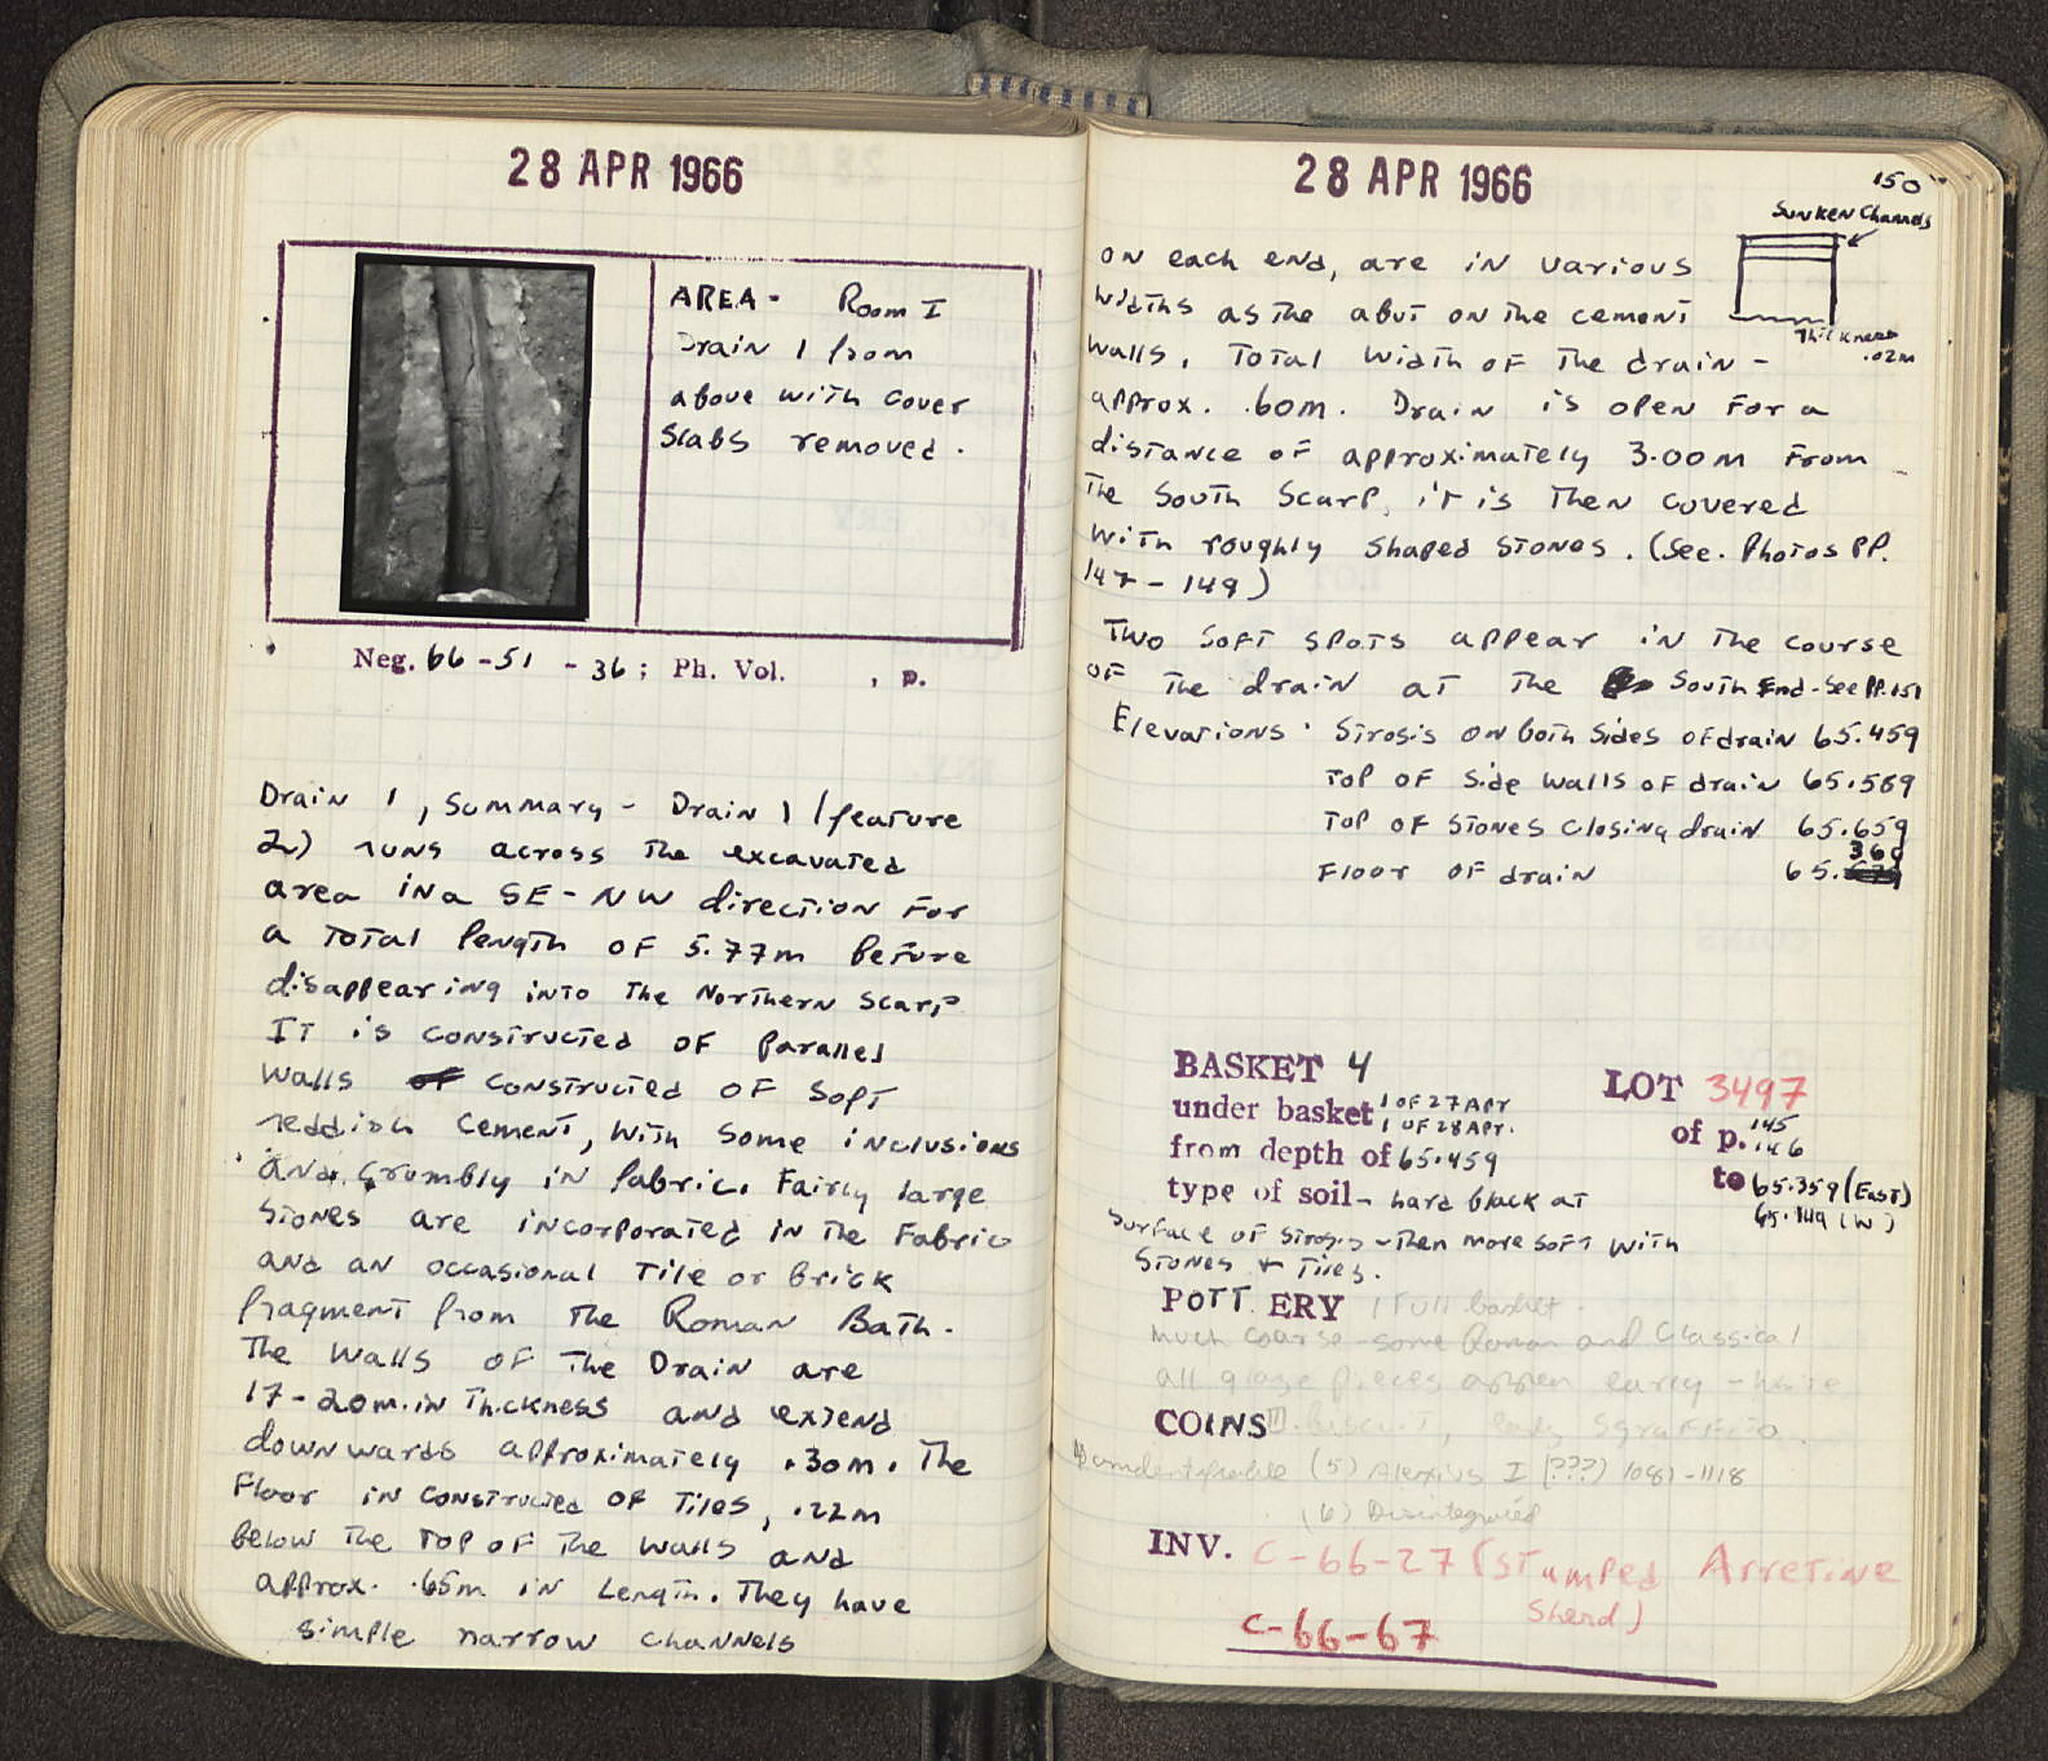 28 APR 1966
AREA - Room I
Drain 1 from
above with cover
Slabs removed.
Neg. 66-51 - 36; Ph. Vol. , p.
Drain 1, Summary - Drain 1 (feature
2) runs across the excavated
area in a SE-NW direction for
a total length of 5.77m before
disappearing into the Northern scarp
It is constructed of parallel
walls of constructed of soft
reddish cement, with some inclusions
and crumbly in fabric. Fairly large
stones are incorporated in the fabric
and an occasional tile or brick
fragment from the Roman Bath.
The walls of the Drain are
17-20m. in thickness and extend
downwards approximately .30m. The
Floor in constructed of tiles, .22m
below the top of the walls and
approx. .65m in length. They have
simple narrow channels
28 APR 1966
150
Sunken Channels
on each end, are in various
widths as the abut on the cement
Thickness
.02m
walls. Total width of the drain -
approx. .60m. Drain is open for a
distance of approximately 3.00m from
the South Scarp, it is then covered
with roughly shaped stones. (See. Photos PP.
147-149)
Two soft spots appear in the course
of the drain at the South End - See PP. 151
Elevations: Strosis on both sides of drain 65.459
Top of side walls of drain 65.589
Top of stones closing drain 65.659
Floor of drain 65.369
BASKET 4
LOT 3497
under basket 1 of 27 Apr
1 of 28 Apr.
of p. 145
146
from depth of 65.459
to 65.359 (East)
65.149 (W)
type of soil - hard black at
surface of strosis - then more soft with
stones + tiles.
POTTERY 1 full basket.
much coarse - some Roman and Classical
all glaze pieces appear early - white
COINS biscuit, early sgraffito.
unidentifiable (5) Alexius I (???) 1081-1118
(6) Disintegrated
INV. C-66-27 (Stamped Arretine
Sherd)
C-66-67